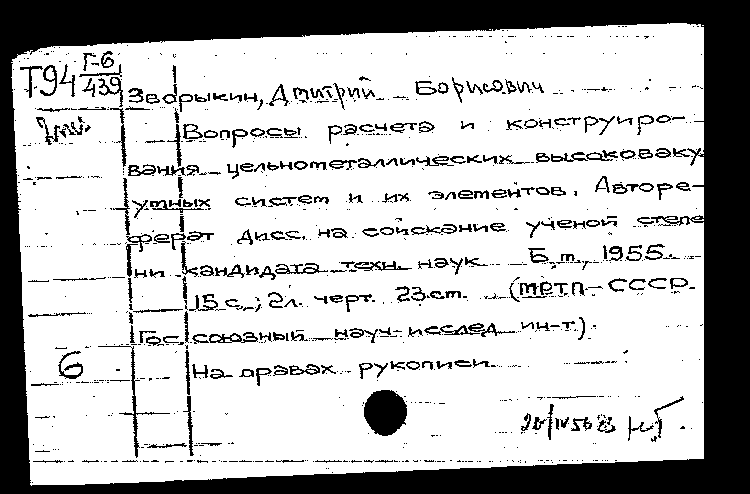 Т94 Г-6
439
Зворыкин, Дмитрий Борисович
Вопросы расчета и конструиро-
вания цельнометаллических высоковаку
умных систем и их элементов. Авторе-
ферат дисс. на соискание ученой степе
ни кандидата техн. наук Б.м., 1955.
15 с.; 2л. черт. 23 см. (МРТП-СССР.
Гос союзный науч-исслед ин-т).
6 На правах рукописи